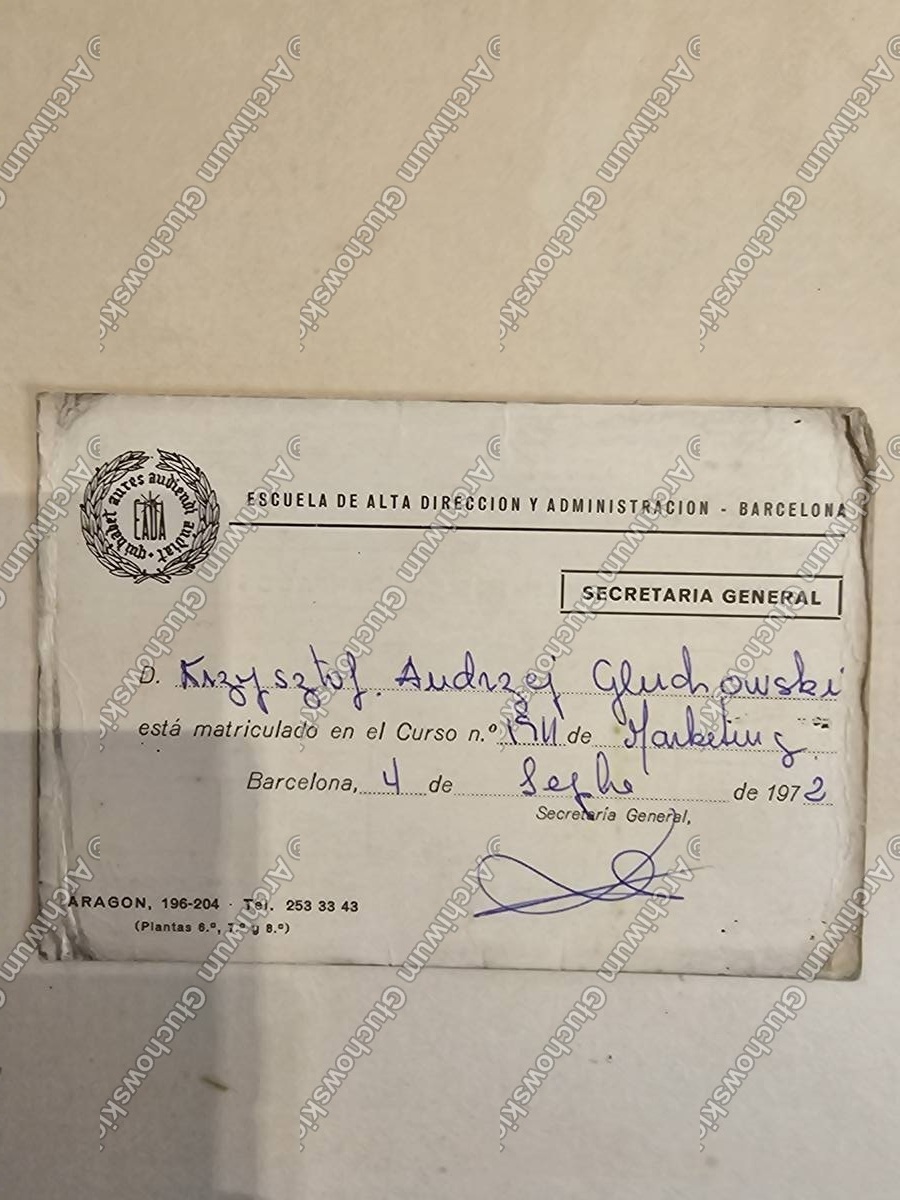 qui habet aures audiendi audiat
EADA
ESCUELA DE ALTA DIRECCION Y ADMINISTRACION - BARCELONA
SECRETARIA GENERAL
D. Krzysztof Andrzej Gluchowski
está matriculado en el Curso n.º de Marketing
Barcelona, 4 de de 1972
Secretaría General,
ARAGON, 196-204 · Tel. 253 33 43
(Plantas 6.ª, 7.ª y 8.ª)
© Archiwum Głuchowskich